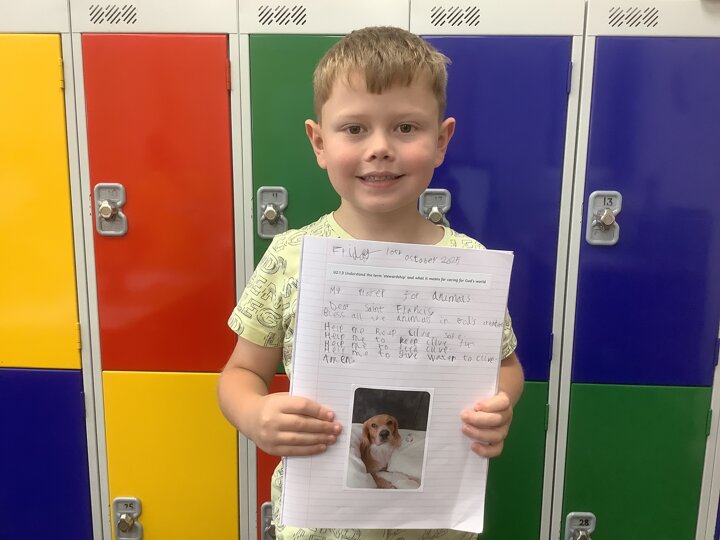 Friday 10th October 2025
U2.1.3 Understand the term 'stewardship' and what it means for caring for God's world
My Prayer for animals
Dear Saint Francis
Bless all the animals in God's creation
Help me keep Clive safe
Help me to keep Clive fun
Help me to feed Clive
Help me to give water to Clive
Amen
11
13
25
28